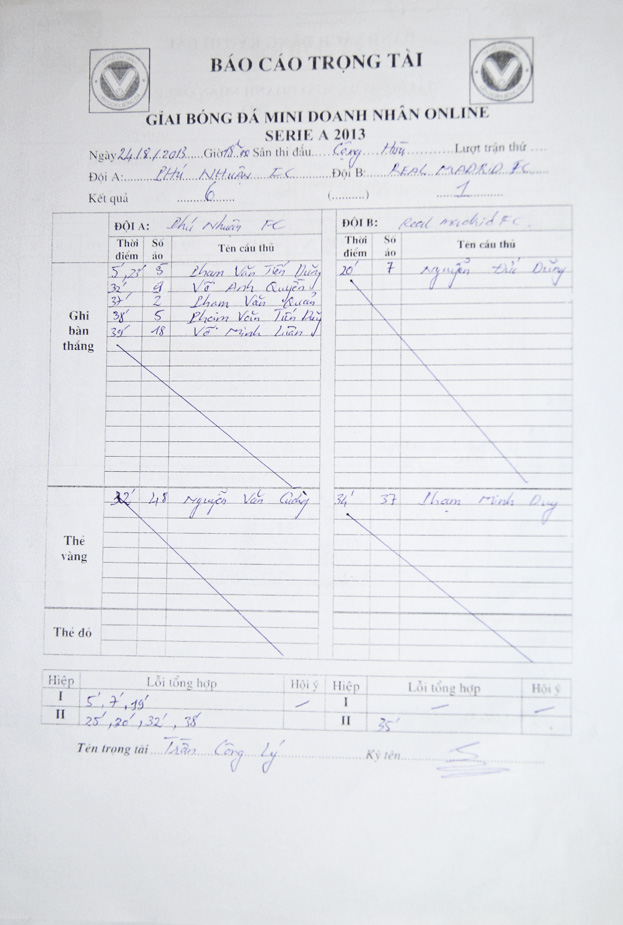 BÁO CÁO TRỌNG TÀI
GIẢI BÓNG ĐÁ MINI DOANH NHÂN ONLINE
SERIE A 2013
Ngày 24/8/2013 Giờ Sân thi đấu.... Cộng Hòa ........ Lượt trận thứ ....
Đội A: PHÚ NHUẬN FC Đội B: REAL MADRID FC
Kết quả 6 (..........) 1
ĐỘI A: Phú Nhuận FC ĐỘI B: Real Madrid FC
Thời điểm Số áo Tên cầu thủ Thời điểm Số áo Tên cầu thủ
Ghi bàn thắng
5', 25' 5 Phạm Văn Tiến Dũng 20' 7 Nguyễn Đức Dũng
32' 9 Võ Anh Quyền
37' 2 Phạm Văn Quân
38' 5 Phạm Văn Tiến Dũng
39' 18 Võ Minh Luân
Thẻ vàng
32' 48 Nguyễn Văn Cường 34' 37 Phạm Minh Duy
Thẻ đỏ
Hiệp Lỗi tổng hợp Hội ý Hiệp Lỗi tổng hợp Hội ý
I 5', 7', 19' – I – –
II 25', 20', 32', 38' II 35'
Tên trọng tài Trần Công Lý Ký tên